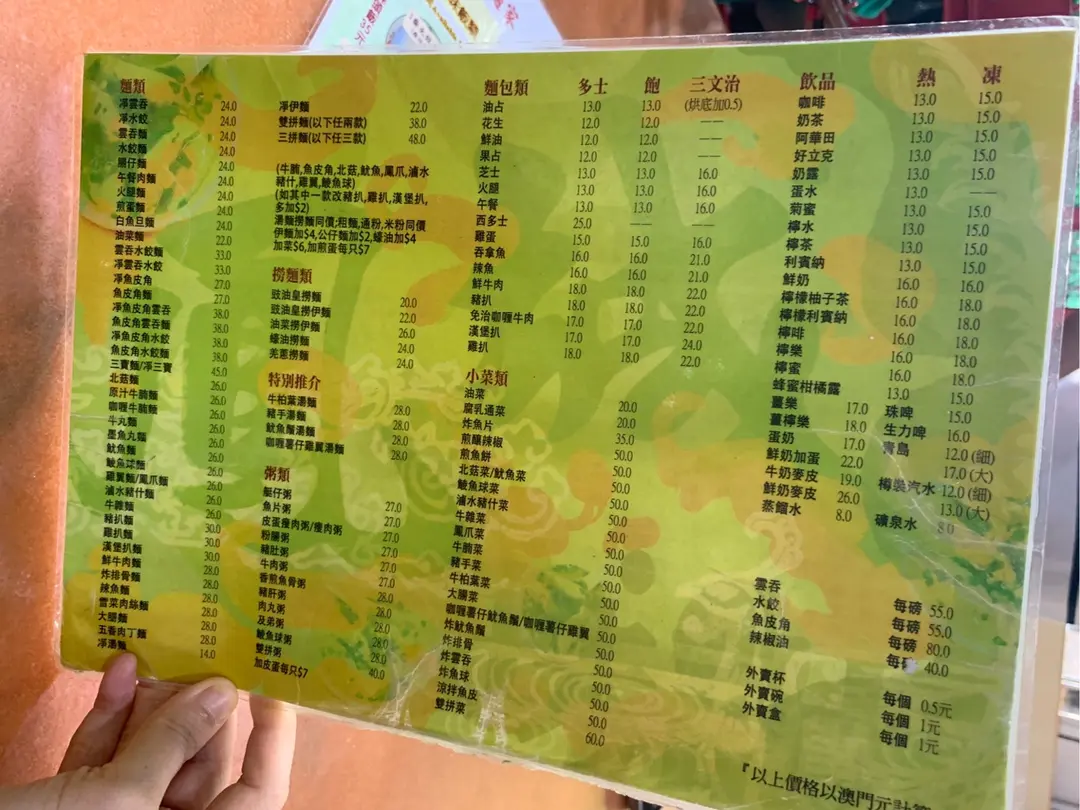 麵類
淨雲吞 24.0
淨水餃 24.0
雲吞麵 24.0
水餃麵 24.0
腸仔麵 24.0
午餐肉麵 24.0
火腿麵 24.0
煎蛋麵 24.0
白魚旦麵 24.0
油菜麵 22.0
雲吞水餃麵 33.0
淨雲吞水餃 33.0
淨魚皮角 27.0
魚皮角麵 27.0
淨魚皮角雲吞 38.0
魚皮角雲吞麵 38.0
淨魚皮角水餃 38.0
魚皮角水餃麵 38.0
三寶麵/淨三寶 45.0
北菇麵 26.0
原汁牛腩麵 26.0
咖喱牛腩麵 26.0
牛丸麵 26.0
墨魚丸麵 26.0
魷魚麵 26.0
鯪魚球麵 26.0
雞翼麵/鳳爪麵 26.0
滷水豬什麵 26.0
牛雜麵 26.0
豬扒麵 30.0
雞扒麵 30.0
漢堡扒麵 30.0
鮮牛肉麵 28.0
炸排骨麵 28.0
辣魚麵 28.0
雪菜肉絲麵 28.0
大腿麵 28.0
五香肉丁麵 28.0
淨湯麵 14.0
淨伊麵 22.0
雙拼麵(以下任兩款) 38.0
三拼麵(以下任三款) 48.0
(牛腩,魚皮角,北菇,魷魚,鳳爪,滷水
豬什,雞翼,鯪魚球)
(如其中一款改豬扒,雞扒,漢堡扒,
多加$2)
湯麵撈麵同價;粗麵,通粉,米粉同價
伊麵加$4,公仔麵加$2,蠔油加$4
加菜$6,加煎蛋每只$7
撈麵類
豉油皇撈麵 20.0
豉油皇撈伊麵 22.0
油菜撈伊麵 26.0
蠔油撈麵 24.0
羌蔥撈麵 24.0
特別推介
牛柏葉湯麵 28.0
豬手湯麵 28.0
魷魚鬚湯麵 28.0
咖喱薯仔雞翼湯麵 28.0
粥類
艇仔粥 27.0
魚片粥 27.0
皮蛋瘦肉粥/瘦肉粥 27.0
粉腸粥 27.0
豬肚粥 27.0
牛肉粥 27.0
香煎魚骨粥 28.0
豬肝粥 28.0
肉丸粥 28.0
及弟粥 28.0
鯪魚球粥 28.0
雙拼粥 40.0
加皮蛋每只$7
麵包類 多士 飽 三文治
油占 13.0 13.0 (烘底加0.5)
花生 12.0 12.0 ——
鮮油 12.0 12.0 ——
果占 12.0 12.0 ——
芝士 13.0 13.0 16.0
火腿 13.0 13.0 16.0
午餐 13.0 13.0 16.0
西多士 25.0 —— ——
雞蛋 15.0 15.0 16.0
吞拿魚 16.0 16.0 21.0
辣魚 16.0 16.0 21.0
鮮牛肉 18.0 18.0 22.0
豬扒 18.0 18.0 22.0
免治咖喱牛肉 17.0 17.0 22.0
漢堡扒 17.0 17.0 24.0
雞扒 18.0 18.0 22.0
小菜類
油菜 20.0
腐乳通菜 20.0
炸魚片 35.0
煎釀辣椒 50.0
煎魚餅 50.0
北菇菜/魷魚菜 50.0
鯪魚球菜 50.0
滷水豬什菜 50.0
牛雜菜 50.0
鳳爪菜 50.0
牛腩菜 50.0
豬手菜 50.0
牛柏葉菜 50.0
大腸菜 50.0
咖喱薯仔魷魚鬚/咖喱薯仔雞翼 50.0
炸魷魚鬚 50.0
炸排骨 50.0
炸雲吞 50.0
炸魚球 50.0
涼拌魚皮 50.0
雙拼菜 60.0
飲品 熱 凍
咖啡 13.0 15.0
奶茶 13.0 15.0
阿華田 13.0 15.0
好立克 13.0 15.0
奶露 13.0 15.0
蛋水 13.0 ——
菊蜜 13.0 15.0
檸水 13.0 15.0
檸茶 13.0 15.0
利賓納 13.0 15.0
鮮奶 16.0 16.0
檸檬柚子茶 16.0 18.0
檸檬利賓納 16.0 18.0
檸啡 16.0 18.0
檸樂 16.0 18.0
檸蜜 16.0 18.0
蜂蜜柑橘露 13.0 15.0
薑樂 17.0 珠啤 15.0
薑檸樂 18.0 生力啤 16.0
蛋奶 17.0 青島 12.0 (細)
鮮奶加蛋 22.0 17.0 (大)
牛奶麥皮 19.0 樽裝汽水 12.0 (細)
鮮奶麥皮 26.0 13.0 (大)
蒸餾水 8.0 礦泉水 8.0
雲吞 每磅 55.0
水餃 每磅 55.0
魚皮角 每磅 80.0
辣椒油 每磅 40.0
外賣杯 每個 0.5元
外賣碗 每個 1元
外賣盒 每個 1元
『以上價格以澳門元計算